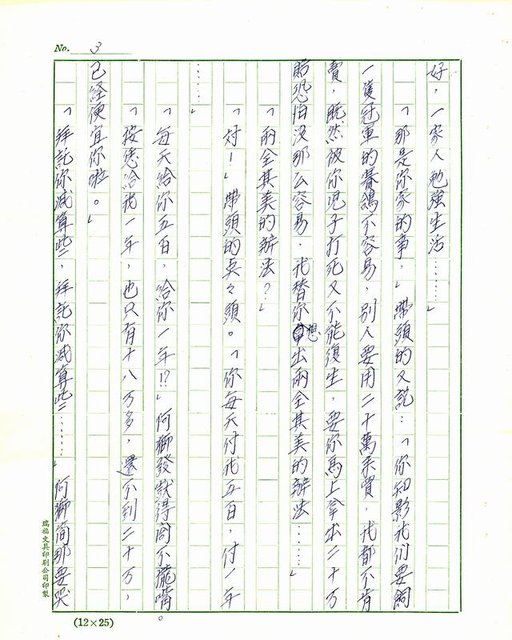 No. 3
好，一家人勉強生活……」
「那是你家的事，」帶頭的又說：「你知影我们要飼
一隻冠軍的賽鴿不容易，別人要用二十萬來買，我都不肯
賣，既然被你兒子打死又不能復生，要你馬上拿出二十万
賠恐怕沒那么容易，我替你想出兩全其美的辦法……」
「兩全其美的辦法？」
「対！」帶頭的点々頭。「你每天付我五百，付一年
……」
「每天給你五百，給你一年！？」何獅發獃得闔不攏嘴。
「按怎給我一年，也只有十八万多，還不到二十万，
已経便宜你啦。」
「拜託你减算些，拜託你减算些……」何獅簡那要哭
瑞福文具印刷公司印製
(12×25)